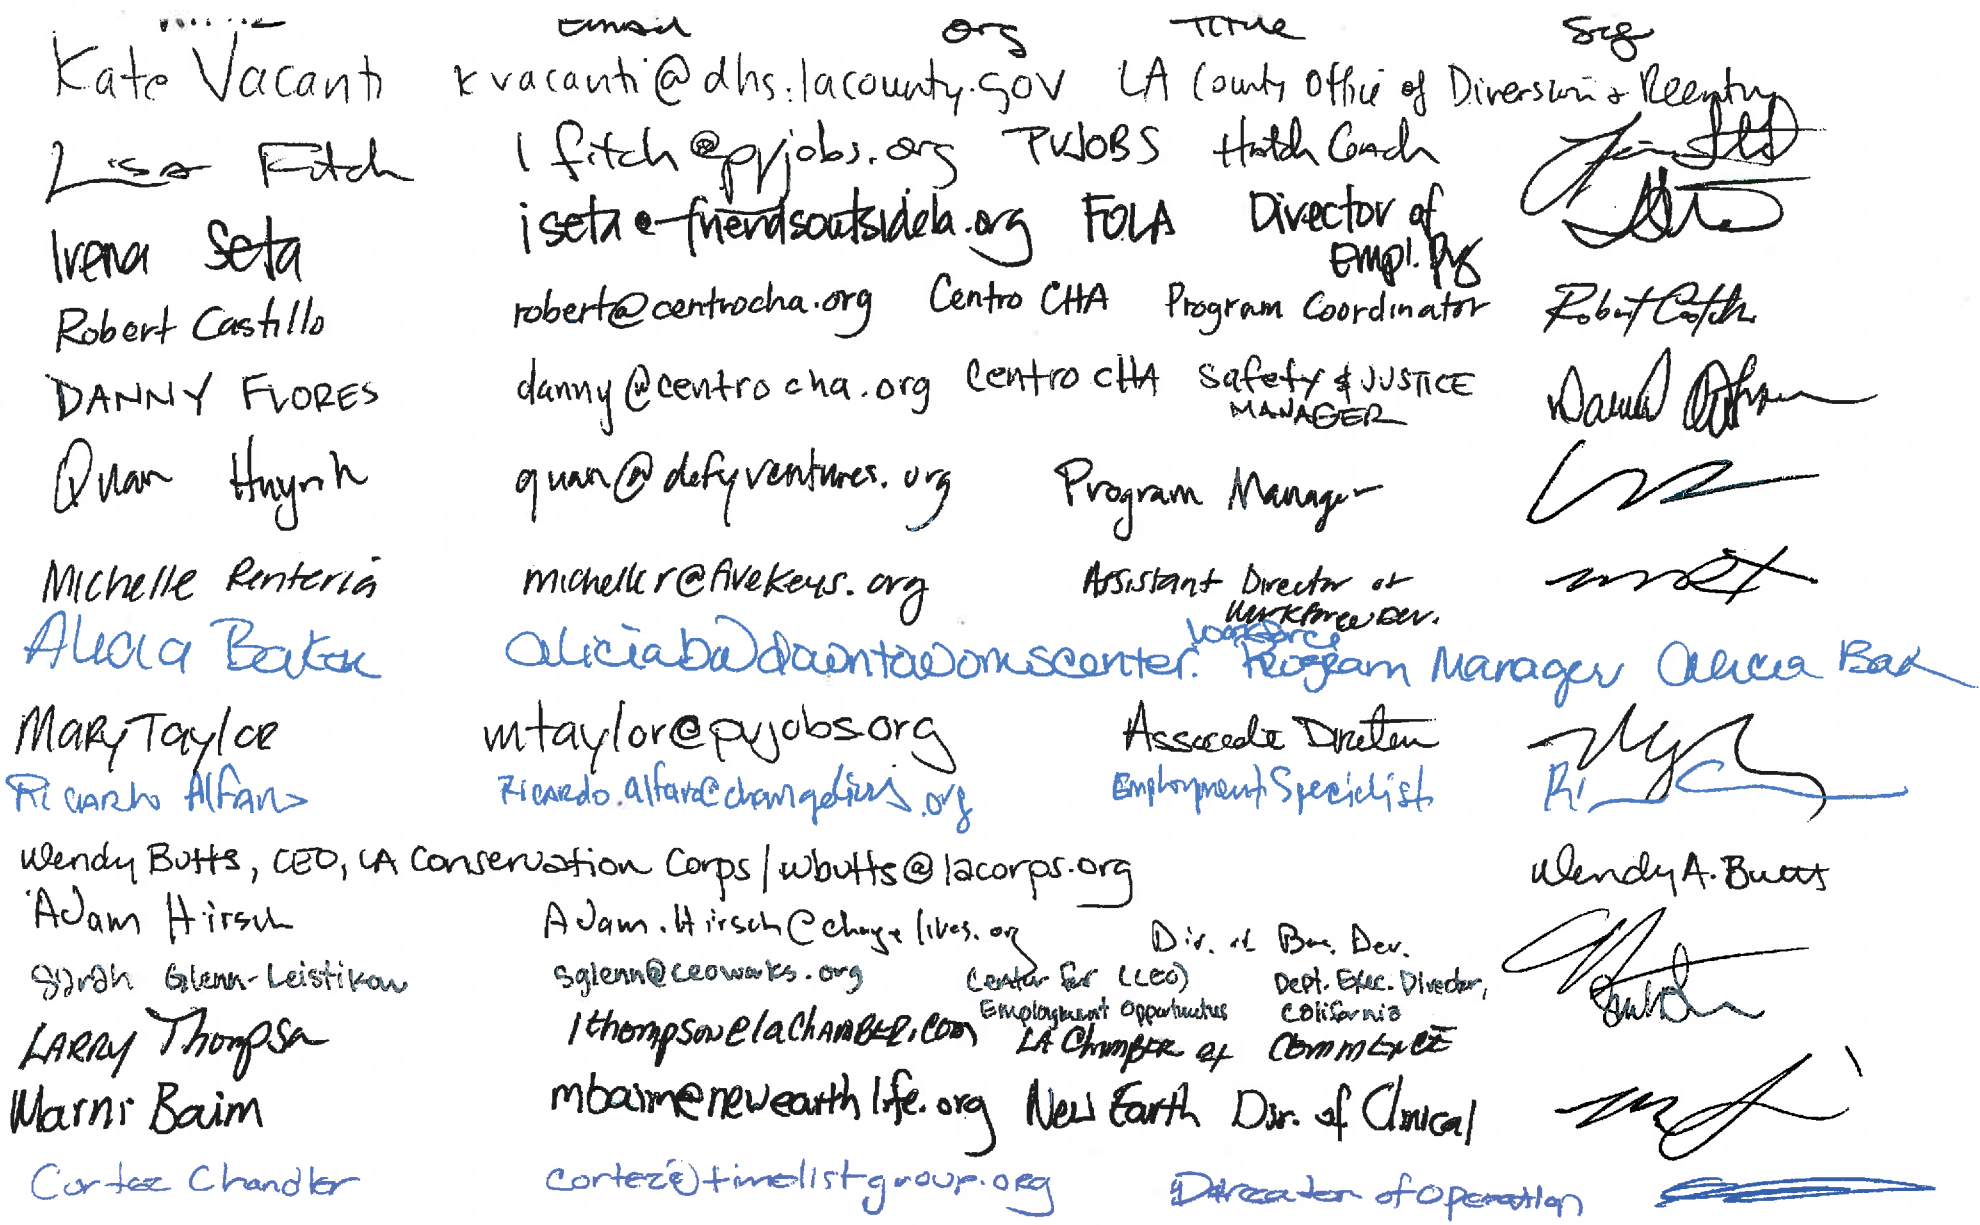 Email Org Title Sig
Kate Vacanti kvacanti@dhs.lacounty.gov LA County Office of Diversion & Reentry
Lisa Fitch lfitch@pvjobs.org PVJOBS Hatch Coach
Irena Seta iseta@friendsoutsidela.org FOLA Director of
Empl. Prg
Robert Castillo robert@centrocha.org Centro CHA Program Coordinator Robert Castillo
DANNY FLORES danny@centrocha.org Centro CHA Safety & JUSTICE
MANAGER
Quan Huynh quan@defyventures.org Program Manager
Michelle Renteria micheller@fivekeys.org Assistant Director of
Workforce Dev.
Workforce
Alicia Baker aliciab@downtownwomenscenter. Program Manager Alicia Bak
Mary Taylor mtaylor@pvjobs.org Associate Director
Ricardo Alfaro Ricardo.alfaro@changelives.org Employment Specialist
Wendy Butts, CEO, LA Conservation Corps/wbutts@lacorps.org Wendy A. Butts
Adam Hirsch Adam.Hirsch@changelives.org Dir. of Bus. Dev.
Sarah Glenn-Leistikow sglenn@ceoworks.org Center for (CEO) Dept. Exec. Director,
Employment Opportunities California
LARRY Thompson lthompson@laCHAMBER.com LA Chamber of COMMERCE
Marni Baim mbaim@newearthlife.org New Earth Dir. of Clinical
Cortez Chandler cortez@timelistgroup.org Director of Operation